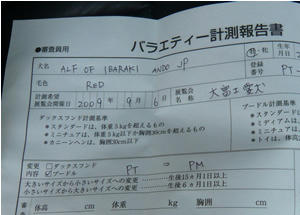 ●審査員用
バラエティー計測報告書
犬名 ALF OF IBARAKI ANDO JP
牡・牝
生年月
毛色 RED
登録番号 PT-
計測希望展覧会開催日 2009年 9月 6日
展覧会名称
ダックスフンド計測基準
＊スタンダードは、体重5kgを超えるもの
＊ミニチュアは、体重5kg以下か胸囲30cmを超えるもの
＊カニーンヘンは、胸囲30cm以下
プードル計測基
＊スタンダード
＊ミディアムは
＊ミニチュアは
＊トイは、体高
変更内容
□ダックスフンド
☑プードル
PT ⇒ PM
大きいサイズから小さいサイズへの変更 生後15カ月1日以上
小さいサイズから大きいサイズへの変更 生後6カ月1日以上
体高 cm 体重 kg 胸囲 cm